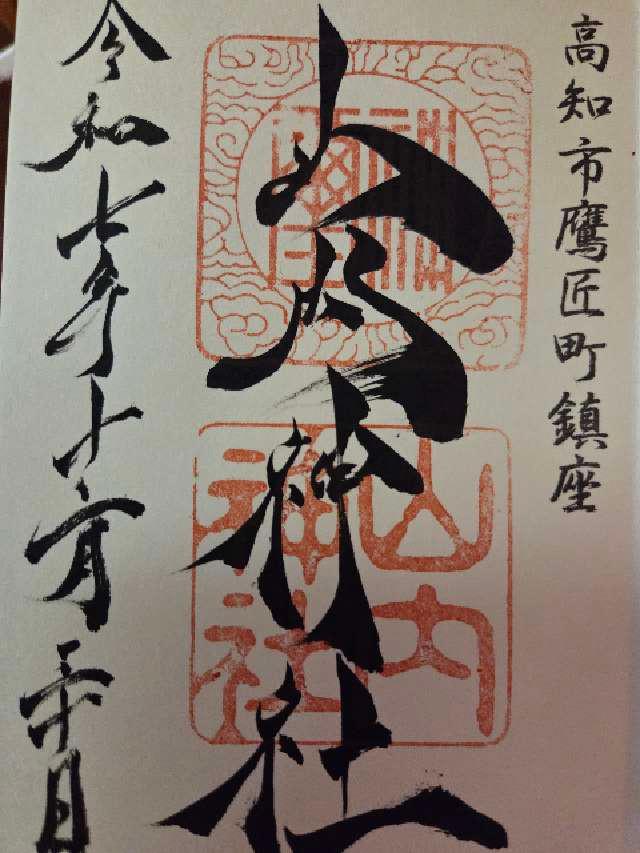 高知市鷹匠町鎮座
山内神社
山内
神社
令和七年十二月